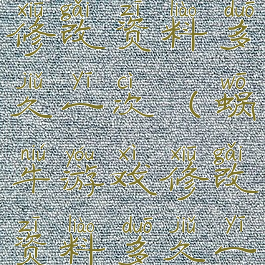 xiū gǎi zī liào duō
修改资料多
jiǔ yī cì wō
久一次(蜗
niú yóu xì xiū gǎi
牛游戏修改
zī liào duō jiǔ yī
资料多久一